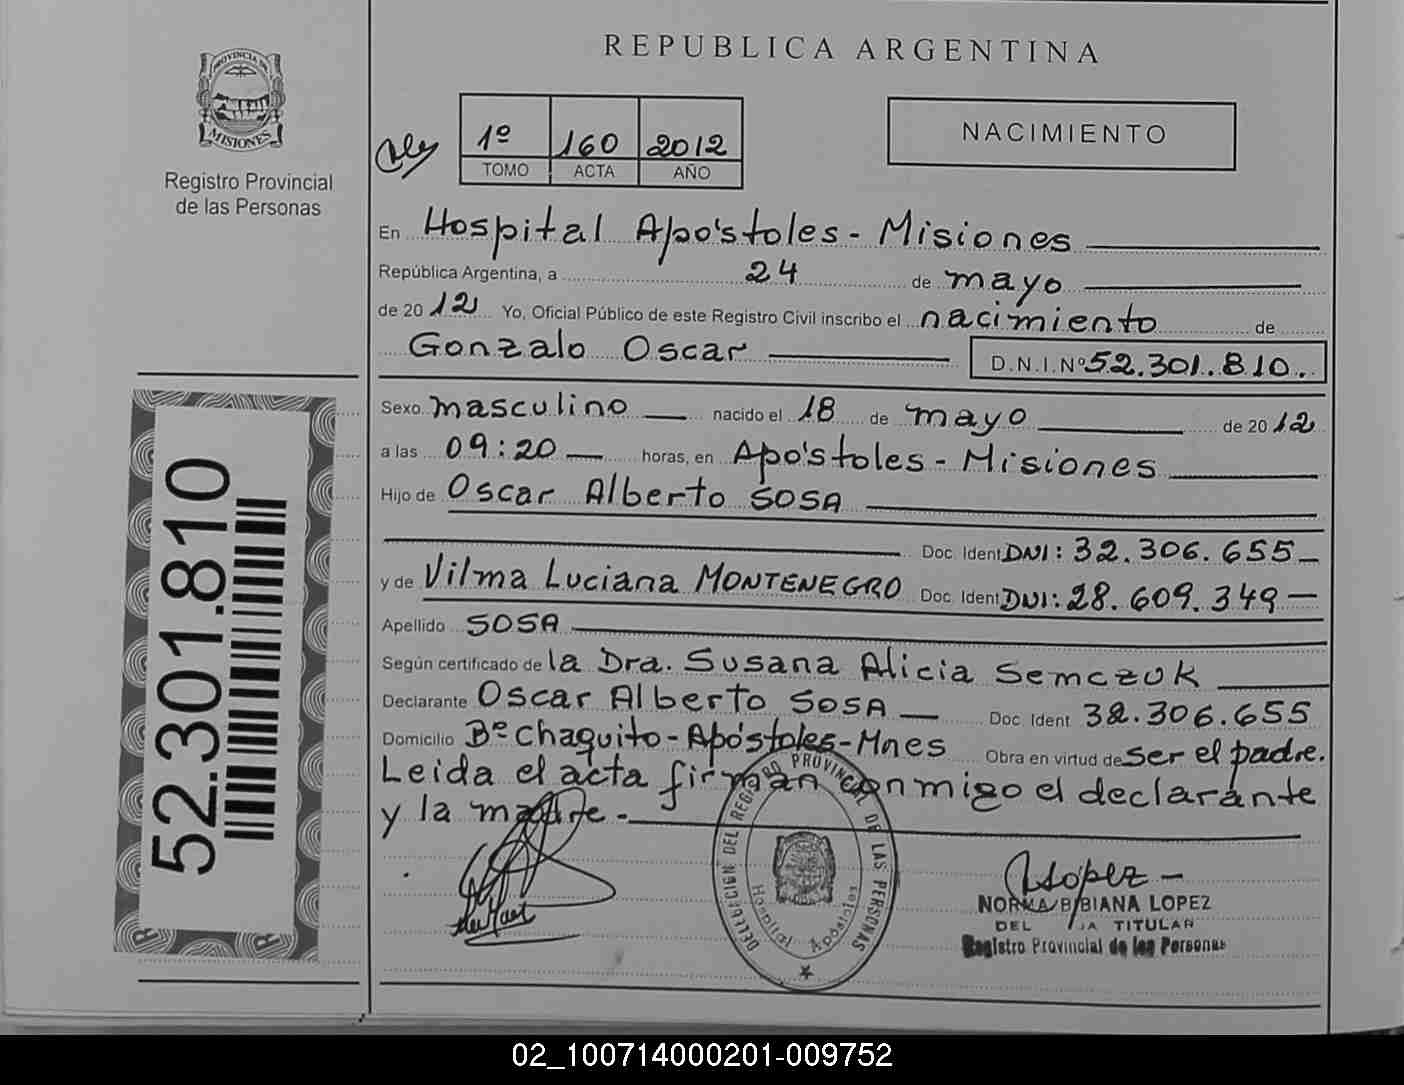 REPUBLICA ARGENTINA
PROVINCIA DE
MISIONES
Registro Provincial
de las Personas
1º 160 2012
TOMO ACTA AÑO
NACIMIENTO
En Hospital Apóstoles - Misiones
República Argentina, a 24 de mayo
de 2012 Yo, Oficial Público de este Registro Civil inscribo el nacimiento de
Gonzalo Oscar D.N.I. Nº 52.301.810.
Sexo masculino nacido el 18 de mayo de 2012
a las 09:20 horas, en Apóstoles - Misiones
Hijo de Oscar Alberto SOSA
Doc. Ident DNI: 32.306.655
y de Vilma Luciana MONTENEGRO Doc. Ident DNI: 28.609.349
Apellido SOSA
Según certificado de la Dra. Susana Alicia Semczuk
Declarante Oscar Alberto SOSA Doc. Ident 32.306.655
Domicilio Bº Chaquito - Apóstoles - Mnes Obra en virtud de ser el padre.
Leida el acta firman conmigo el declarante
y la madre.-
52.301.810
DELEGACION DEL REGISTRO PROVINCIAL DE LAS PERSONAS
Hospital Apóstoles
NLópez
NORMA BIBIANA LOPEZ
TITULAR
Registro Provincial de las Personas
02_100714000201-009752